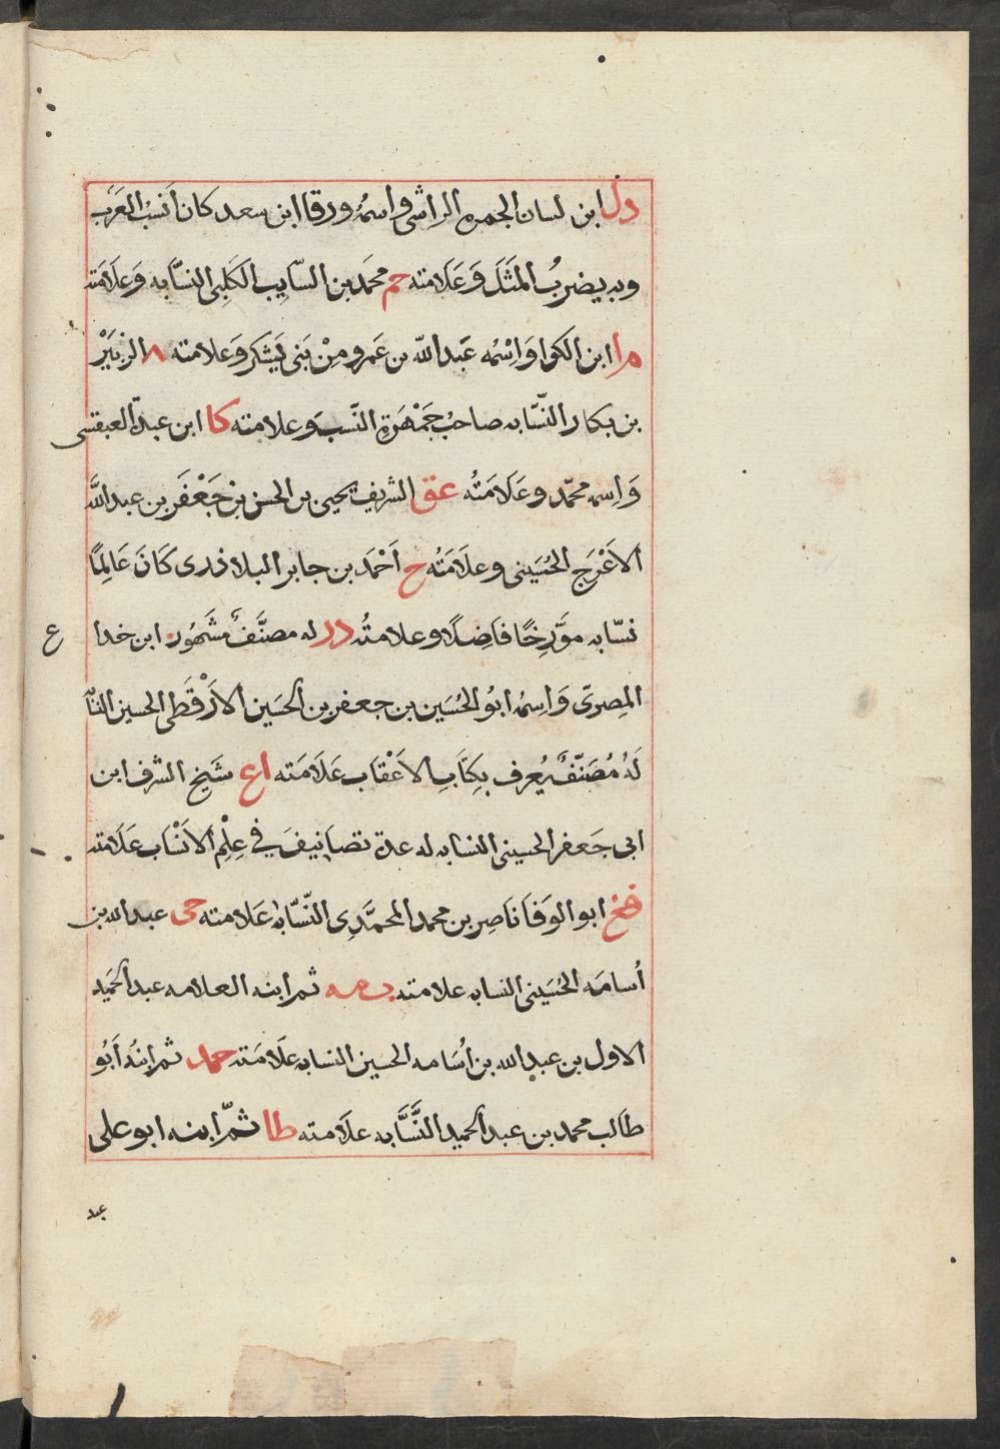 دل ابن لسان الجمره الراشى واسمُه ورقا ابن سعد كان اَنسبُ العَرَب
وبه يضربُ المَثَلَ وَعَلَامته حم محمَد بن السّايب الكَلبى النسَّابه وَعلَامَته
ما ابن الكوا وَاِسْمُه عَبد الله بن عَمرو مِنْ بَنى يَشكر وَعلامته ٨ الزبَيْر
بن بكار النّسّابه صاحبُ جَمْهَرَةِ النّسب وعلامته كا ابن عبدة العبقسى
وَاِسمه محمّد وعَلَامَتُه عق الشريف يحيى بن الحسن بن جَعْفَر بن عبد الله
الاَعْرَج الحُسَينى وعلَامَتُه ح اَحْمَد بن جابر البلاذرى كَانَ عَالِمًا
نسّابه مؤَرِخًا فَاضِلًا وعلامتُه در له مصنَّفٌ مشَهُور ابن خدا ع
المِصرىّ وَاسِمُه ابُو الحُسَين بن جعفر بن الحسَين الاَرْقَطى الحسين النسّا
لَهُ مُصَنّفٌ يُعرف بكِتَابِ الاَعْقاب عَلَامَته اع شَيخ الشرف ابن
ابى جَعفر الحسينى النسّابه له عدة تصَانِيفَ فِي عِلْمِ الاَنْسَاب عَلَامته
فخ ابو الوَفَا نَاصِر بن محمد المحمَّدِى النّسّابه عَلامته حى عبد الله بن
اُسامَه الحُسَينى النسابه علامته ثم ابنه العلامه عبد الحَميد
الاول بن عبدِ الله بن اُسَامه الحسين النسابه علَامَته حمد ثم ابنُه اَبُو
طالب محمد بن عبد الحميد النَّسَّابه علَامته طا ثمّ ابنه ابو على